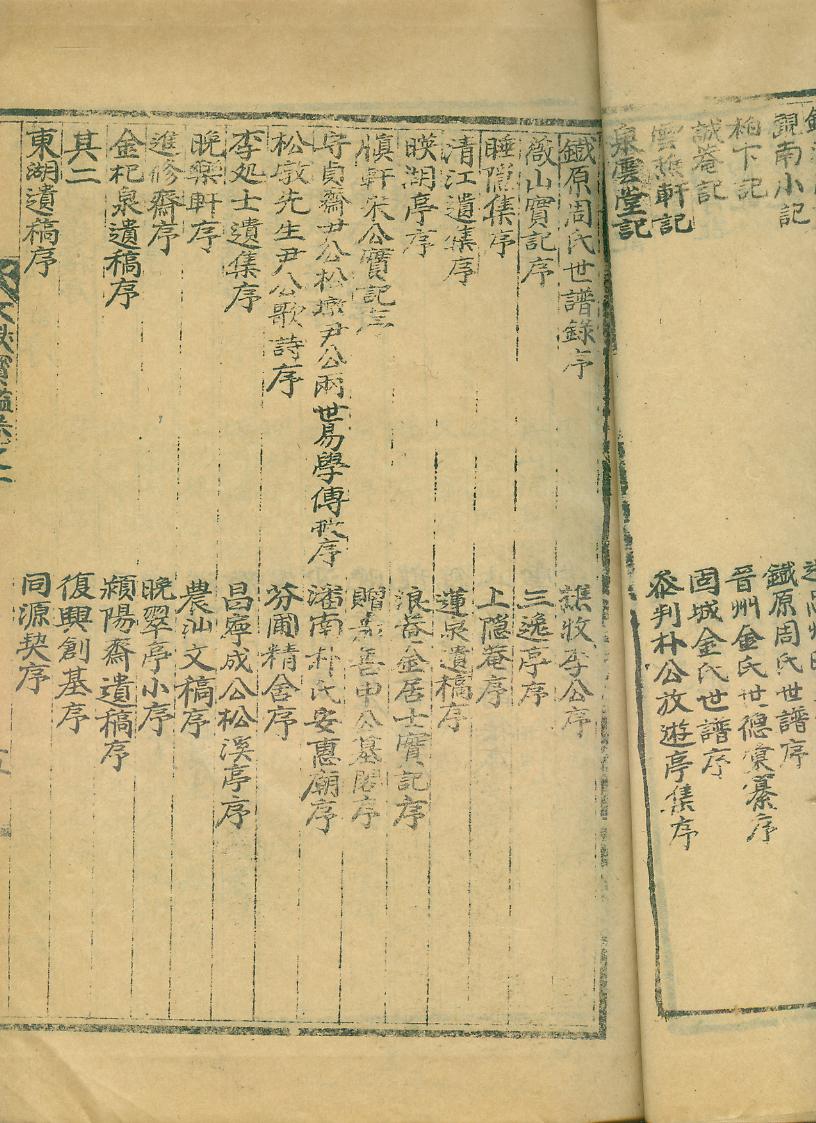 覩南小記
柏下記
誠菴記
雲樵軒記
泉雲堂記
鐵原周氏世譜序
晉州金氏世德彙纂序
固城金氏世譜序
參判朴公放遊亭集序
鐵原周氏世譜錄序
薇山實記序
睡隱集序
淸江遺集序
暎湖亭序
愼軒宋公實記序
守貞齋尹公松墩尹公兩世易學傳授序
松墩先生尹公歌詩序
李処士遺集序
晩樂軒序
進修齋序
金杞泉遺稿序
其二
東湖遺稿序
樵牧李公序
三逸亭序
上隱菴序
蓮泉遺稿序
浪菴金居士實記序
贈嘉善申公墓閣序
潘南朴氏安惠廟序
芬圃精舍序
昌寧成公松溪亭序
農汕文稿序
晩翠亭小序
潁陽齋遺稿序
復興創基序
同源契序